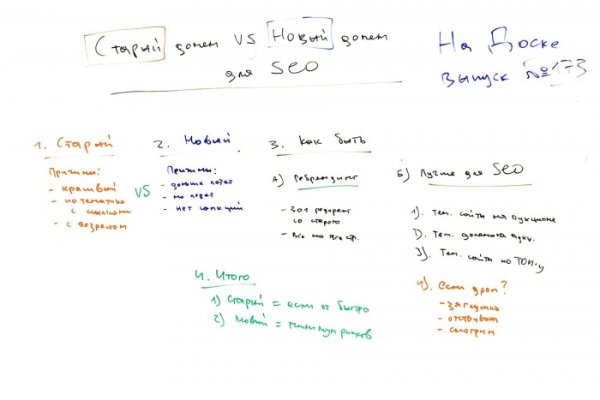 Старый домен VS Новый домен
для SEO
На Доске
выпуск №173
1. Старый
Причины:
- красивый
- по тематике
с ссылками
- с возрастом
VS
2. Новый
Причины:
- дольше
- не
- нет санкций
3. Как быть
А) Ребрендинг
- 301 редирект
со старого
- все на все стр.
Б) Лучше для SEO
1). Тем. сайты на аукционе
2). Тем. домены
3). Тем. сайты по ТОП-у
4). если дроп?
- заглушка
- отстоялся
- смотрим
4. Итого
1) Старый = если оч быстро
2) Новый = минимум рисков